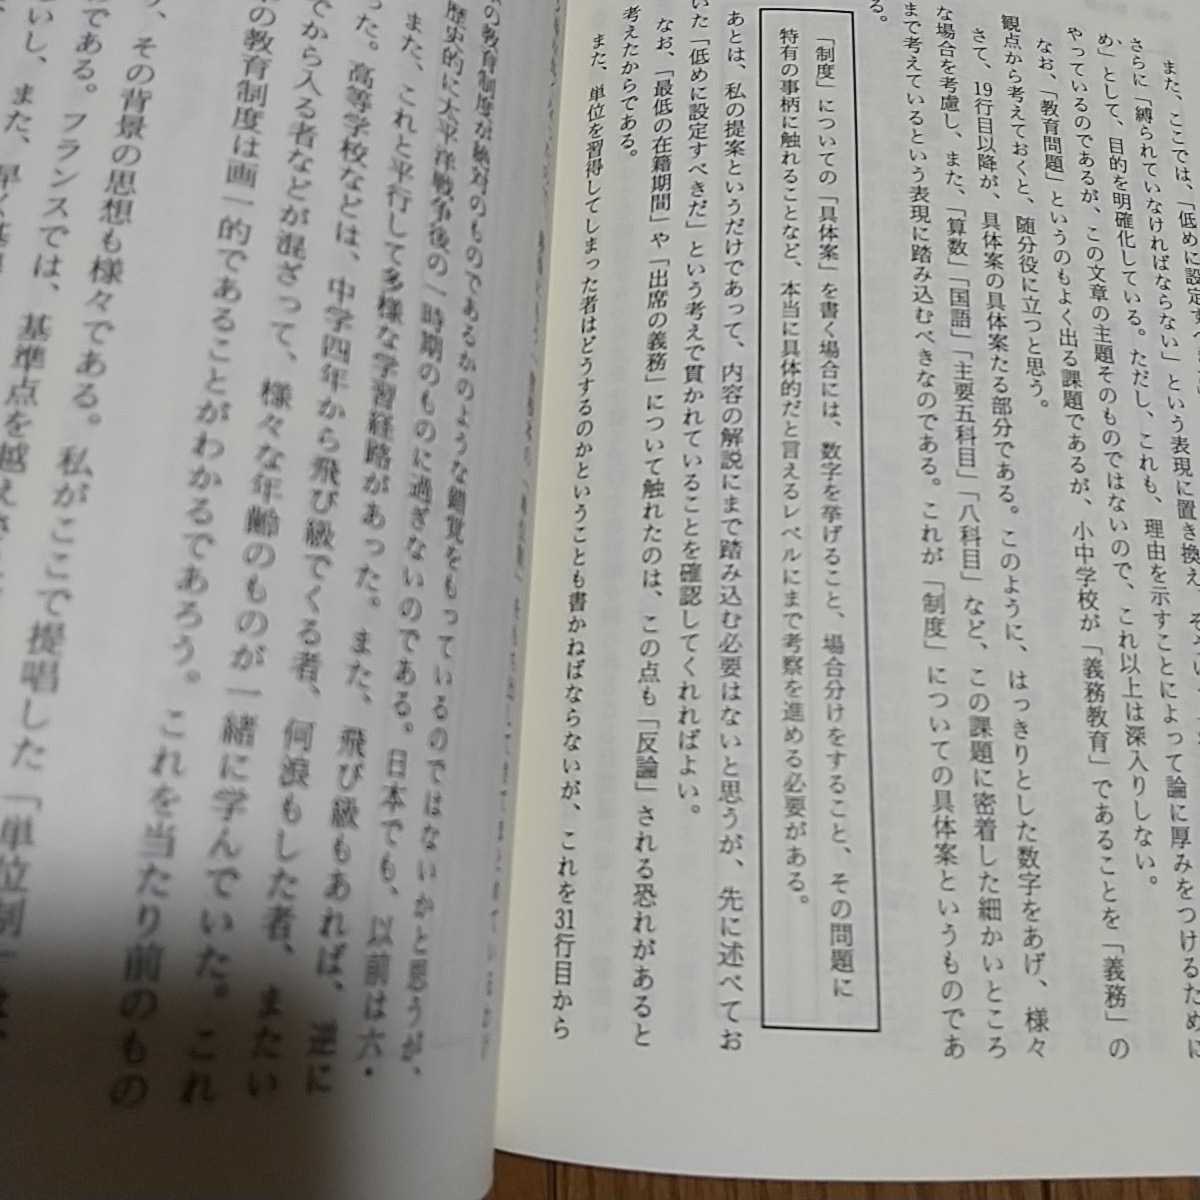 また、ここでは、「低めに設定す
さらに「縛られていなければならない」という表現に置き換え、
め」として、目的を明確化している。ただし、これも、理由を示すことによって論に厚みをつけるために
やっているのであるが、この文章の主題そのものではないので、これ以上は深入りしない。
なお、「教育問題」というのもよく出る課題であるが、小中学校が「義務教育」であることを「義務」の
観点から考えておくと、随分役に立つと思う。
さて、19行目以降が、具体案の具体案たる部分である。このように、はっきりとした数字をあげ、様々
な場合を考慮し、また、「算数」「国語」「主要五科目」「八科目」など、この課題に密着した細かいところ
まで考えているという表現に踏み込むべきなのである。これが「制度」についての具体案というものであ
る。
「制度」についての「具体案」を書く場合には、数字を挙げること、場合分けをすること、その問題に
特有の事柄に触れることなど、本当に具体的だと言えるレベルにまで考察を進める必要がある。
あとは、私の提案というだけであって、内容の解説にまで踏み込む必要はないと思うが、先に述べてお
いた「低めに設定すべきだ」という考えで貫かれていることを確認してくれればよい。
なお、「最低の在籍期間」や「出席の義務」について触れたのは、この点も「反論」される恐れがあると
考えたからである。
また、単位を習得してしまった者はどうするのかということも書かねばならないが、これを31行目から
の教育制度が絶対のものであるかのような錯覚をもっているのではないかと思うが、
歴史的に太平洋戦争後の一時期のものに過ぎないのである。日本でも、以前は六・
また、これと平行して多様な学習経路があった。また、飛び級もあれば、逆に
た。高等学校などは、中学四年から飛び級でくる者、何浪もした者、またい
でから入る者などが混ざって、様々な年齢のものが一緒に学んでいた。これ
の教育制度は画一的であることがわかるであろう。これを当たり前のもの
、その背景の思想も様々である。私がここで提唱した「単位制」は、
である。フランスでは、基準点を越え
いし、また、早く